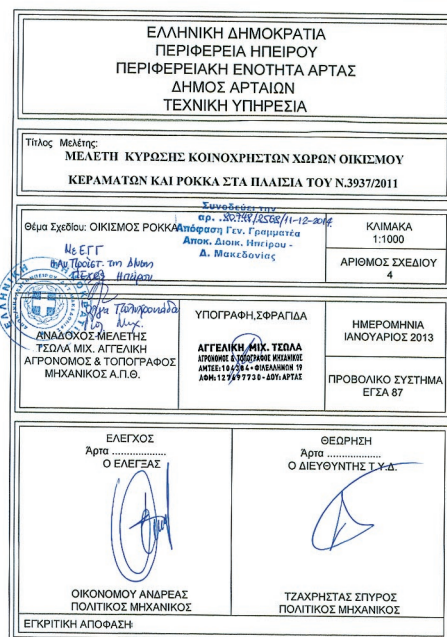 ΕΛΛΗΝΙΚΗ ΔΗΜΟΚΡΑΤΙΑ
ΠΕΡΙΦΕΡΕΙΑ ΗΠΕΙΡΟΥ
ΠΕΡΙΦΕΡΕΙΑΚΗ ΕΝΟΤΗΤΑ ΑΡΤΑΣ
ΔΗΜΟΣ ΑΡΤΑΙΩΝ
ΤΕΧΝΙΚΗ ΥΠΗΡΕΣΙΑ
Τίτλος Μελέτης:
ΜΕΛΕΤΗ ΚΥΡΩΣΗΣ ΚΟΙΝΟΧΡΗΣΤΩΝ ΧΩΡΩΝ ΟΙΚΙΣΜΟΥ
ΚΕΡΑΜΑΤΩΝ ΚΑΙ ΡΟΚΚΑ ΣΤΑ ΠΛΑΙΣΙΑ ΤΟΥ Ν.3937/2011
Συνοδεύει την
αρ. /11-12-2014
Απόφαση Γεν. Γραμματέα
Αποκ. Διοικ. Ηπείρου -
Δ. Μακεδονίας
Θέμα Σχεδίου: ΟΙΚΙΣΜΟΣ ΡΟΚΚΑ
ΚΛΙΜΑΚΑ
1:1000
ΑΡΙΘΜΟΣ ΣΧΕΔΙΟΥ
4
Με ΕΓΓ
ΑΝΑΔΟΧΟΣ ΜΕΛΕΤΗΣ
ΤΣΩΛΑ ΜΙΧ. ΑΓΓΕΛΙΚΗ
ΑΓΡΟΝΟΜΟΣ & ΤΟΠΟΓΡΑΦΟΣ
ΜΗΧΑΝΙΚΟΣ Α.Π.Θ.
ΥΠΟΓΡΑΦΗ,ΣΦΡΑΓΙΔΑ
ΑΓΓΕΛΙΚΗ ΜΙΧ. ΤΣΩΛΑ
ΑΓΡΟΝΟΜΟΣ & ΤΟΠΟΓΡΑΦΟΣ ΜΗΧΑΝΙΚΟΣ
ΦΙΛΕΛΛΗΝΩΝ 19
ΑΦΜ:127497730 - ΔΟΥ: ΑΡΤΑΣ
ΗΜΕΡΟΜΗΝΙΑ
ΙΑΝΟΥΑΡΙΟΣ 2013
ΠΡΟΒΟΛΙΚΟ ΣΥΣΤΗΜΑ
ΕΓΣΑ 87
ΕΛΕΓΧΟΣ
Άρτα ..................
Ο ΕΛΕΓΞΑΣ
ΟΙΚΟΝΟΜΟΥ ΑΝΔΡΕΑΣ
ΠΟΛΙΤΙΚΟΣ ΜΗΧΑΝΙΚΟΣ
ΘΕΩΡΗΣΗ
Άρτα ..................
Ο ΔΙΕΥΘΥΝΤΗΣ Τ.Υ.Δ.
ΤΖΑΧΡΗΣΤΑΣ ΣΠΥΡΟΣ
ΠΟΛΙΤΙΚΟΣ ΜΗΧΑΝΙΚΟΣ
ΕΓΚΡΙΤΙΚΗ ΑΠΟΦΑΣΗ: